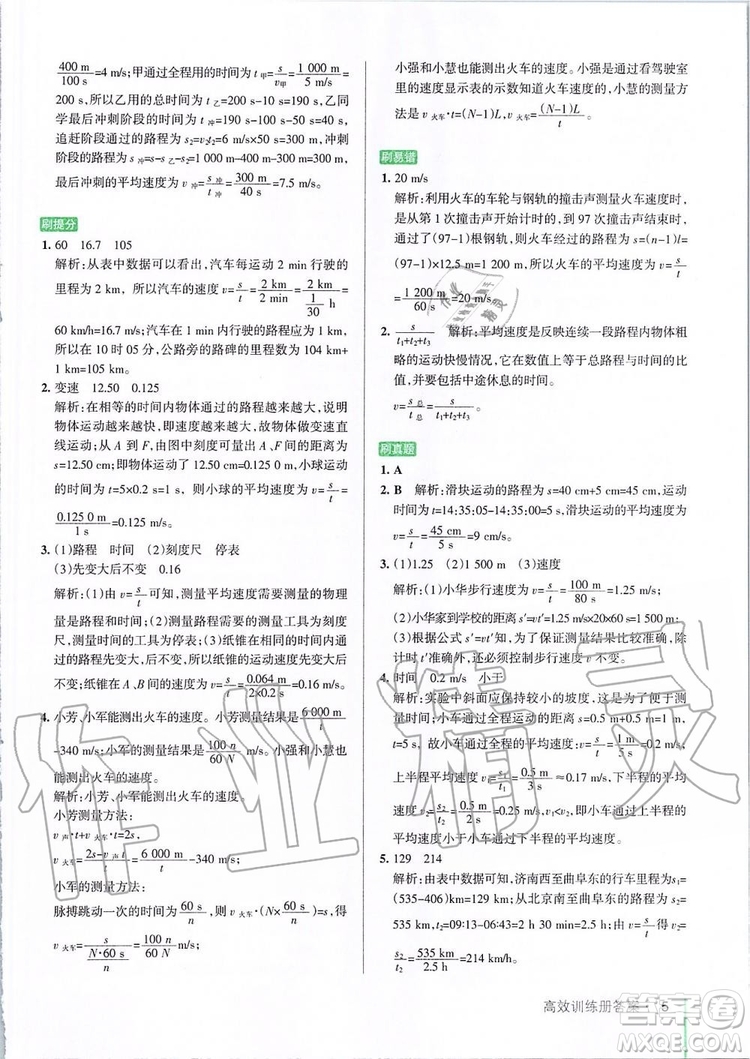 400 m/100 s=4 m/s;甲通过全程用的时间为 t甲=s/v=1 000 m/5 m/s=
200 s,所以乙用的总时间为 t乙=200 s-10 s=190 s,乙同
学最后冲刺阶段的时间 t冲=190 s-100 s-50 s=40 s,
追赶阶段的路程 s2=v2t2=6 m/s×50 s=300 m,冲刺
阶段的路程为 s冲=s-s乙-s2=1 000 m-400 m-300 m=300 m,
最后冲刺的平均速度为 s冲/t冲=300 m/40 s=7.5 m/s。
刷提分
1. 60 16.7 105
解析:从表中数据可以看出,汽车每运动 2 min 行驶的
里程为 2 km,所以汽车的速度 v=s/t=2 km/2 min=2 km/(1/30 h)=
60 km/h=16.7 m/s;汽车在 1 min 的路程应为 1 km,
所以在 10 时 05 分,公路旁的路碑的里程示数为 104 km+
1 km=105 km。
2. 变速 12.50 0.125
解析:在相等的时间内物体通过的路程越来越大,说明
物体运动越来越快,即速度越来越大,故物体做变速直
线运动;从 A 到 F,由图中刻度可知,两点间的距离为
s=12.50 cm;即物体运动了 12.50 cm=0.125 0 m,小球运动
的时间为 t=5×0.2 s=1 s,则小球的平均速度为 v=s/t=
0.125 0 m/1 s=0.125 m/s。
3. (1)路程 时间 (2)刻度尺 停表
(3)先变大后不变 0.16
解析:(1)由 v=s/t可知,测量平均速度需要测量的物理
量是路程和时间;(2)测量路程需要的工具为刻度
尺,测量时间的工具为停表;(3)纸锥在相同时间内通过
的路程先变大后不变,所以纸锥的运动速度先变大后不
变;纸锥在 A、B 间的速度为 v=s/t=0.064 m/2×0.2 s=0.16 m/s。
4. 小芳、小军能测出火车的速度。小芳测量的结果是6 000 m/t
-340 m/s;小军的测量结果是100 n/60 N m/s。小强和小慧也
能测出火车的速度。
解析:小芳、小军能测出火车的速度。
小芳测量方法:
v声·t+v火车·t=2s,
v火车=2s-v声t/t=6 000 m/t-340 m/s;
小军的测量方法:
脉搏跳动一次的时间为60 s/n,则 v火车·(N×60 s/n)=s,得
v火车=s/(N·60 s/n)=100 n/60 N m/s;
小强和小慧也能测出火车的速度。小强是看驾驶室
里的速度显示表的示数知道火车速度的,小慧的测量方
法是 v火车·t=(N-1)L,v火车=(N-1)L/t。
刷易错
1. 20 m/s
解析:利用火车的车轮与钢轨的撞击声测量火车速度时,
是从第 1 次撞击声开始计时,到 97 次撞击声时火车运动
了(97-1)根钢轨,所以火车行驶的路程为 s=(n-1)l=
(97-1)×12.5 m=1 200 m,所以火车的平均速度为 v=s/t=
1 200 m/60 s=20 m/s。
2. s/t1+t2+t3 解析:平均速度是反映连续一段路程内物体粗
略的运动快慢情况,它在数值上等于总路程与总时间的
比值,且包括中途休息的时间。
v=s总/t总=s/t1+t2+t3。
刷真题
1. A
2. B 解析:滑块运动的路程为 s=40 cm+5 cm=45 cm,运动
时间为 t=14:35:05-14:35:00=5 s,滑块运动的平均速度为
v=s/t=45 cm/5 s=9 cm/s。
3. (1)1.25 (2)1 500 m (3)速度
解析:(1)小华步行速度为 v=s/t=100 m/80 s=1.25 m/s。
(2)小华家到学校的距离 s′=vt′=1.25 m/s×20×60 s=1 500 m;
(3)根据公式 s′=vt′知,为了保证测量结果比较准确,除计
时 t′准确外,还必须全程保持速度 v不变。
4. 时间 0.2 m/s 小于
解析:实验中斜面应保持较小的坡度,这样小车运动时间
较长,便于测量时间;小车通过全程运动的距离 s=0.5 m+0.5 m=1 m,
t=5 s,故小车通过全程的平均速度 v=s/t=1 m/5 s=0.2 m/s;
上半程平均速度 v1=s1/t1=0.5 m/3 s≈0.17 m/s,下半程的平均
速度 v2=s2/t2=0.5 m/2 s=0.25 m/s,v1<v2,即小车通过上半程的平均
速度小于小车通过下半程的平均速度。
5. 129 214
解析:由表中数据可知,济南西至曲阜东的行车里程为s1=
(535-406)km=129 km;从北京南至曲阜东的行车里程为s2=
535 km,t2=09:13-06:43=2 h 30 min=2.5 h,由 v=s/t得 v2=
s2/t2=535 km/2.5 h=214 km/h。
高效训练册答案 5
作业精灵
答案圈
MXQE.COM